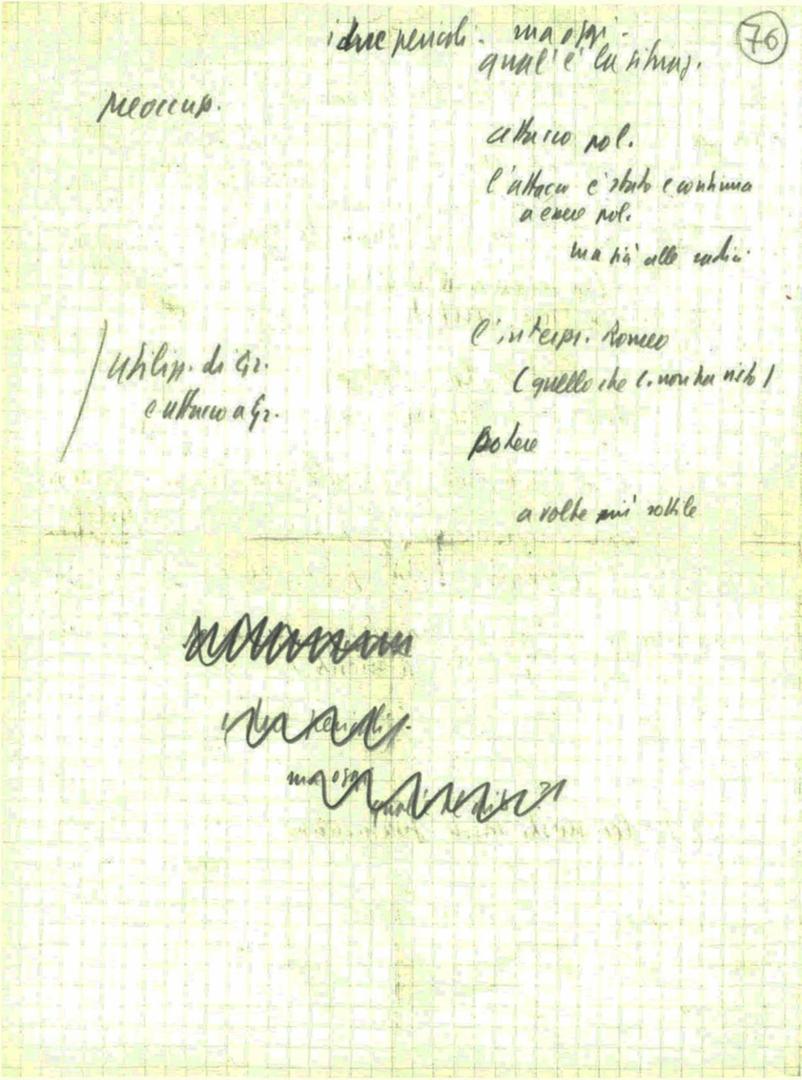 76
i due pericoli. ma oggi.
qual'è la situaz.
preoccup.
attacco pol.
l'attacco è stato e continua
a essere pol.
ma già alle radici
l'interpr. Romeo
(quello che non ha visto)
Utilizz. di Gr.
e attacco a Gr.
Potere
a volte più sottile
i due pericoli.
ma oggi